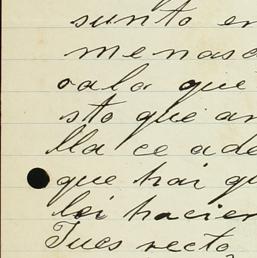 sunto en
menas
oala que
sto que an
lla ce ade
que hai qu
lei hacien
Tues recto